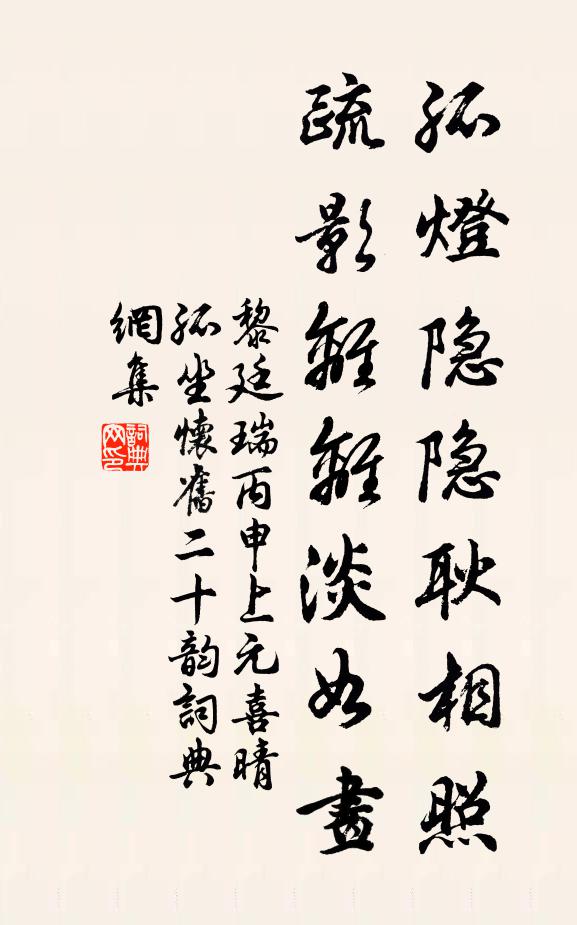 孤燈隐隐耿相照
疏影離離淡如畫
黎廷瑞丙申上元喜晴
孤坐懷舊二十韵詞典
網集
詞典
网印